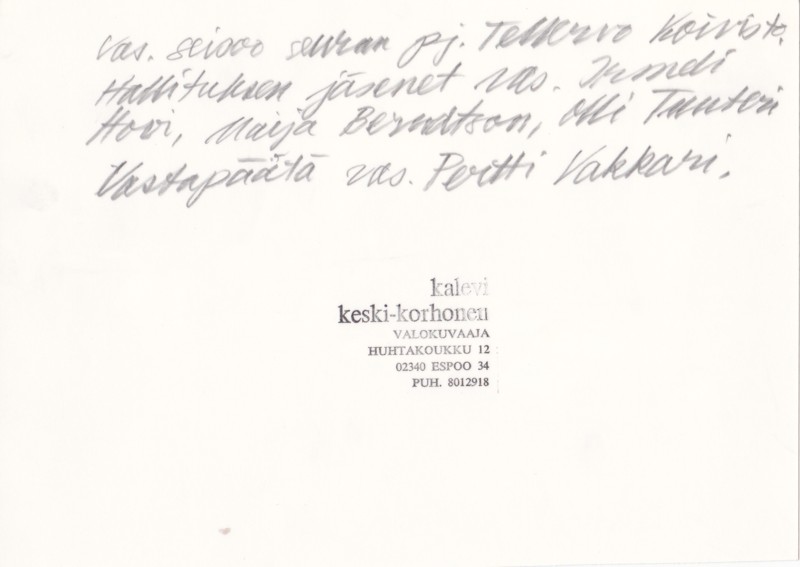 Vas. seisoo seuran pj. Tellervo Koivisto.
Hallituksen jäsenet vas. Irmeli
Hovi, Maija Berndtson, Olli Tanteri
Vastapäätä vas. Pertti Vakkari.
kalevi
keski-korhonen
VALOKUVAAJA
HUHTAKOUKKU 12
02340 ESPOO 34
PUH. 8012918